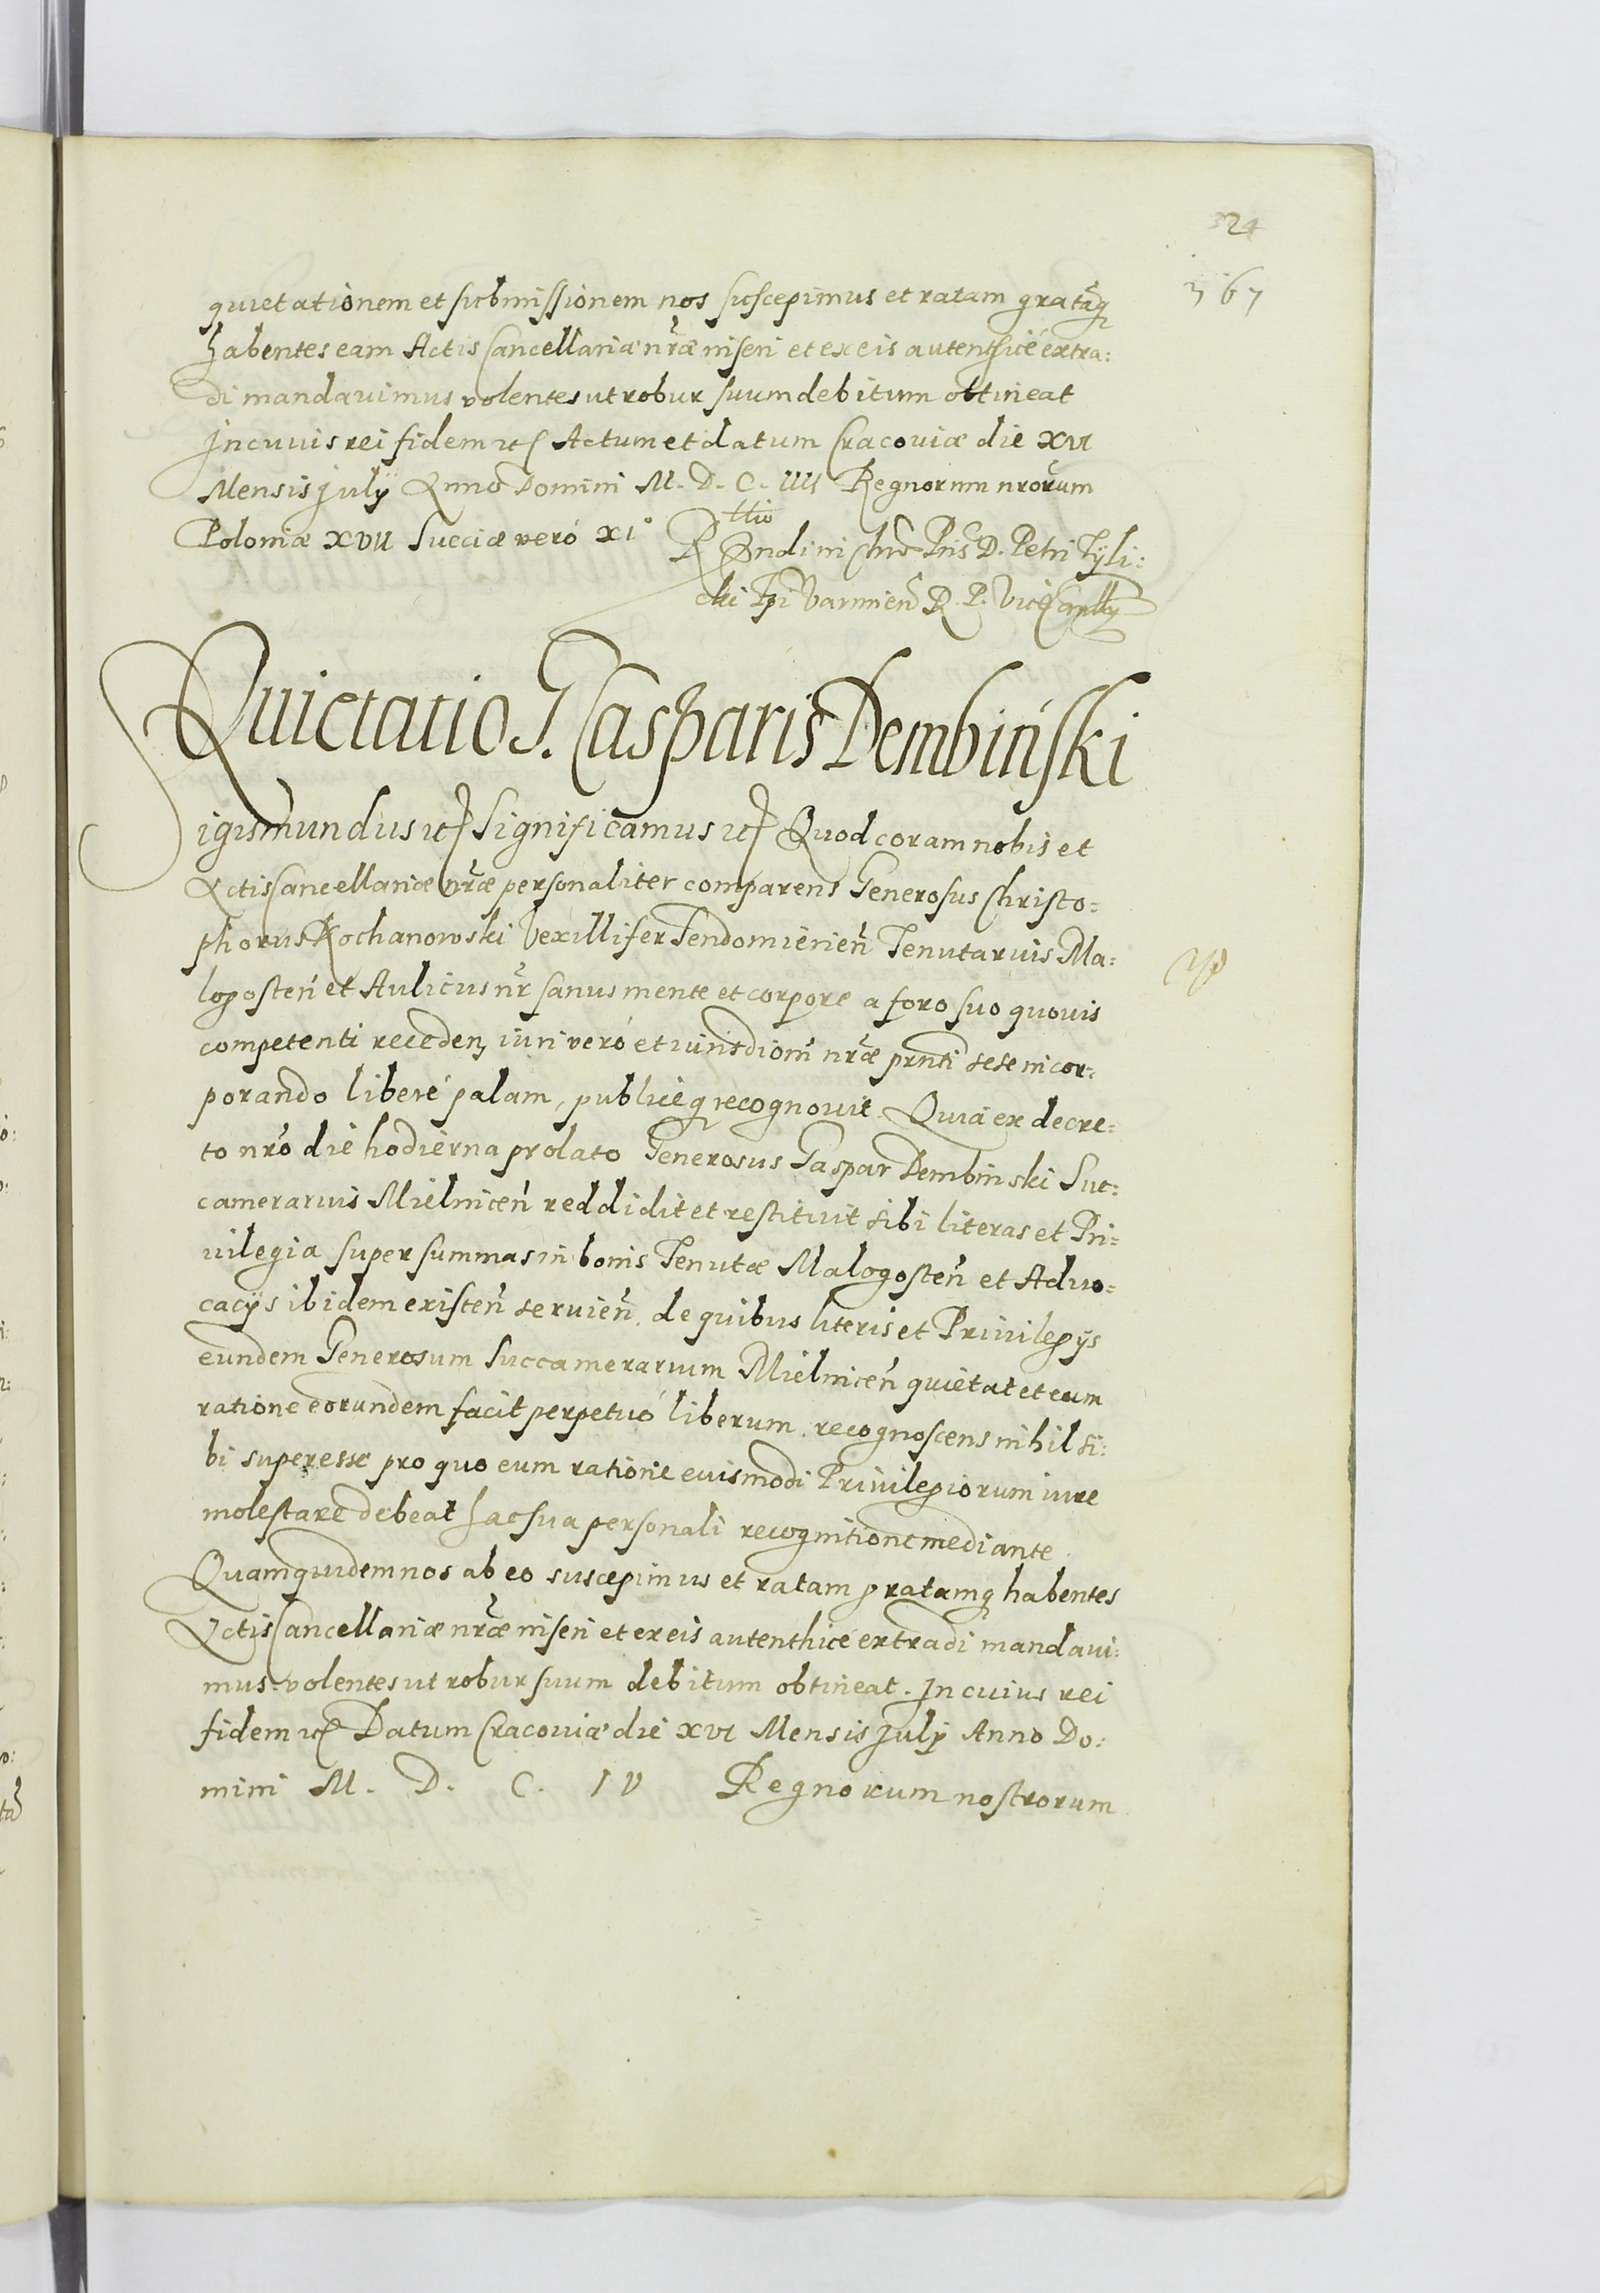 324
367
quietationem et submissionem nos suscepimus et ratam gratāq
habentes eam Actis Cancellariæ nr̃æ inseri et ex eis autenthicè extra:
di mandavimus volentes ut robur suum debitum obtineat
In cuius rei fidem etc Actum et datum Cracoviæ die XVI
Mensis July Anno Domini M. D. C. IIII Regnorum nrorum
Poloniæ XVII Sueciæ verò XI°
Rttio Rndi in Chro Pris D. Petri Tyli:
cki Epi Varmien R. P. Vicecanlly
Quietatio G. Casparis Dembiński
Sigismundus etc Significamus etc Quod coram nobis et
Actis Cancellariæ nr̃æ personaliter comparens Generosus Christo=
phorus Kochanowski Vexillifer Sendomirien̄ Tenutarius Ma=
logosten̄ et Aulicus nr̄ sanus mente et corpore a foro suo quovis
competenti receden, iuri verò et iurisdioni nr̃æ prnti sese incor=
porando liberè palam, publiceq recognovit. Quia ex decre=
to nrō die hodierna prolato Generosus Gaspar Dembinski Suc=
camerarius Mielnicen̄ reddidit et restituit sibi literas et Pri=
uilegia super summas in bonis Tenutæ Malogosten̄ et Aduo=
cacijs ibidem existen̄ seruien̄. de quibus literis et Priuilegijs
eundem Generosum Succamerarium Mielnicen̄ quietat et eum
ratione eorundem facit perpetuò liberum. recognoscens nihil si:
bi superesse pro quo eum ratione euismodi Priuilegiorum iure
molestare debeat hac sua personali recognitione mediante.
Quamquidem nos ab eo suscepimus et ratam gratamq habentes
Actis Cancellariæ nr̃æ inseri et ex eis autenthicè extradi mandaui:
mus. volentes ut robur suum debitum obtineat. In cuius rei
fidem etc Datum Cracoviæ die XVI Mensis July Anno Do:
mini M. D. C. IV Regnorum nostrorum